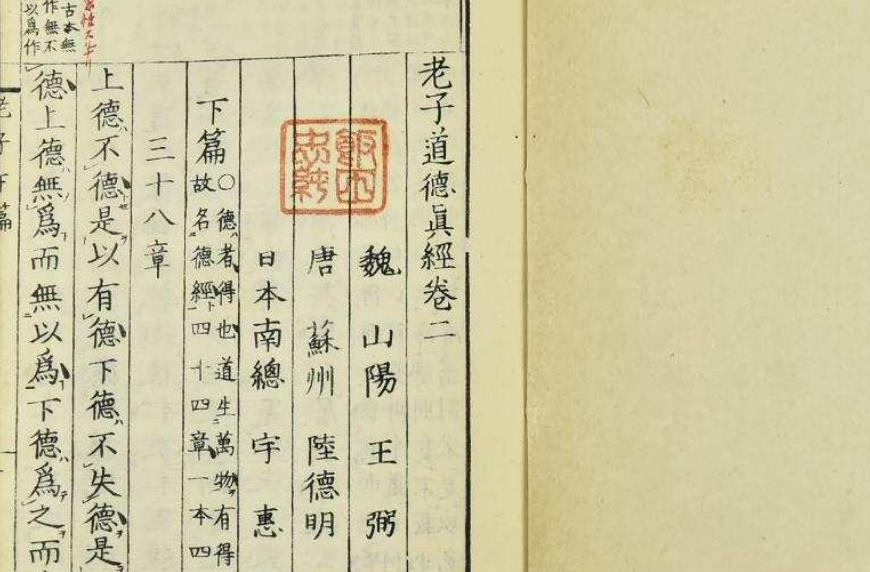 老子道德眞經卷二
魏 山陽 王 弼
唐 蘇州 陸德明
日本南總 宇 惠
下篇
○德者得也道生萬物有得
故名德經四十四章一本四
三十八章
上德不德是以有德下德不失德是
德上德無爲而無以爲下德爲之而
古本無
作無不
以爲作
老子下篇